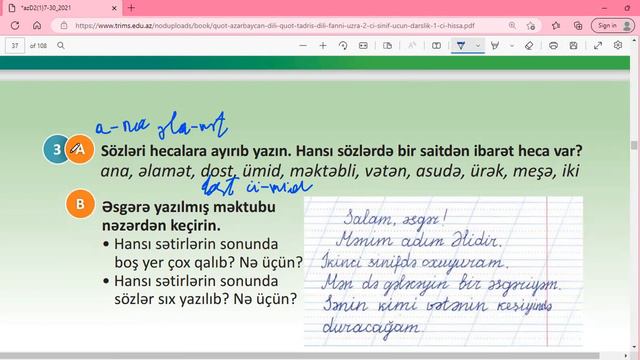 *azD2(1)7-30_2021
https://www.trims.edu.az/noduploads/book/quot-azarbaycan-dili-quot-tadris-dili-fanni-uzra-2-ci-sinif-ucun-darslik-1-ci-hissa.pdf
Sign in
37 of 108
a-na əla-mət
3 A Sözləri hecalara ayırıb yazın. Hansı sözlərdə bir saitdən ibarət heca var?
ana, əlamət, dost, ümid, məktəbli, vətən, asudə, ürək, meşə, iki
dost ü-mid
B Əsgərə yazılmış məktubu
nəzərdən keçirin.
• Hansı sətirlərin sonunda
boş yer çox qalıb? Nə üçün?
• Hansı sətirlərin sonunda
sözlər sıx yazılıb? Nə üçün?
Salam, əsgər!
Mənim adım Əlidir.
İkinci sinifdə oxuyuram.
Mən də gələcəyin bir əsgəriyəm.
Sənin kimi vətənin keşiyində
duracağam.